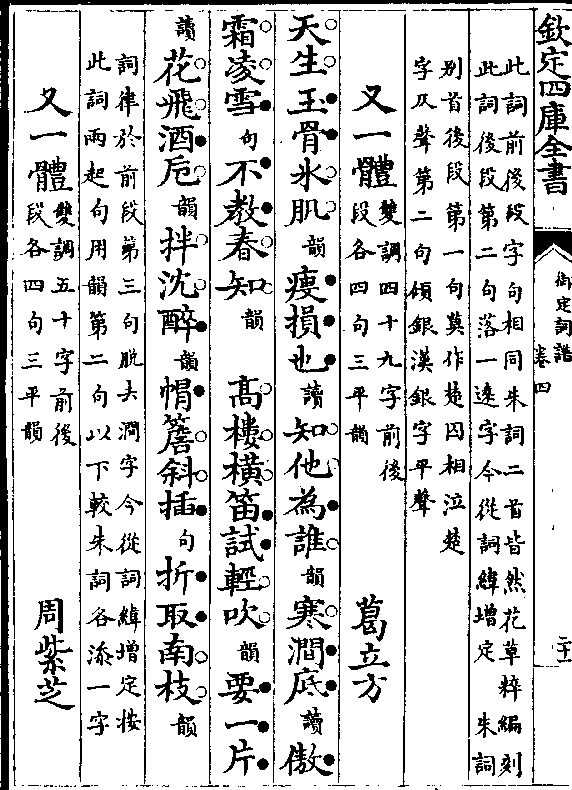 欽定四庫全書
御定詞譜
卷四
此詞前後段字句相同朱詞二首皆然花草粹編刻
此詞後段第二句落一遶字今從詞緯增定　朱詞
別首後段第一句莫作楚囚相泣楚
字仄聲第二句傾銀漢銀字平聲
又一體
雙調四十九字前後
段各四句三平韻
葛立方
天生玉骨冰肌韻瘦損也讀知他為誰韻寒澗底讀傲
霜凌雪句不教春知韻　高樓橫笛試輕吹韻要一片
讀花飛酒卮韻拌沈醉韻帽簷斜插句折取南枝韻
詞律於前段第三句脫去澗字今從詞緯增定按
此詞兩起句用韻第二句以下較朱詞各添一字
又一體
雙調五十字前後
段各四句三平韻
周紫芝